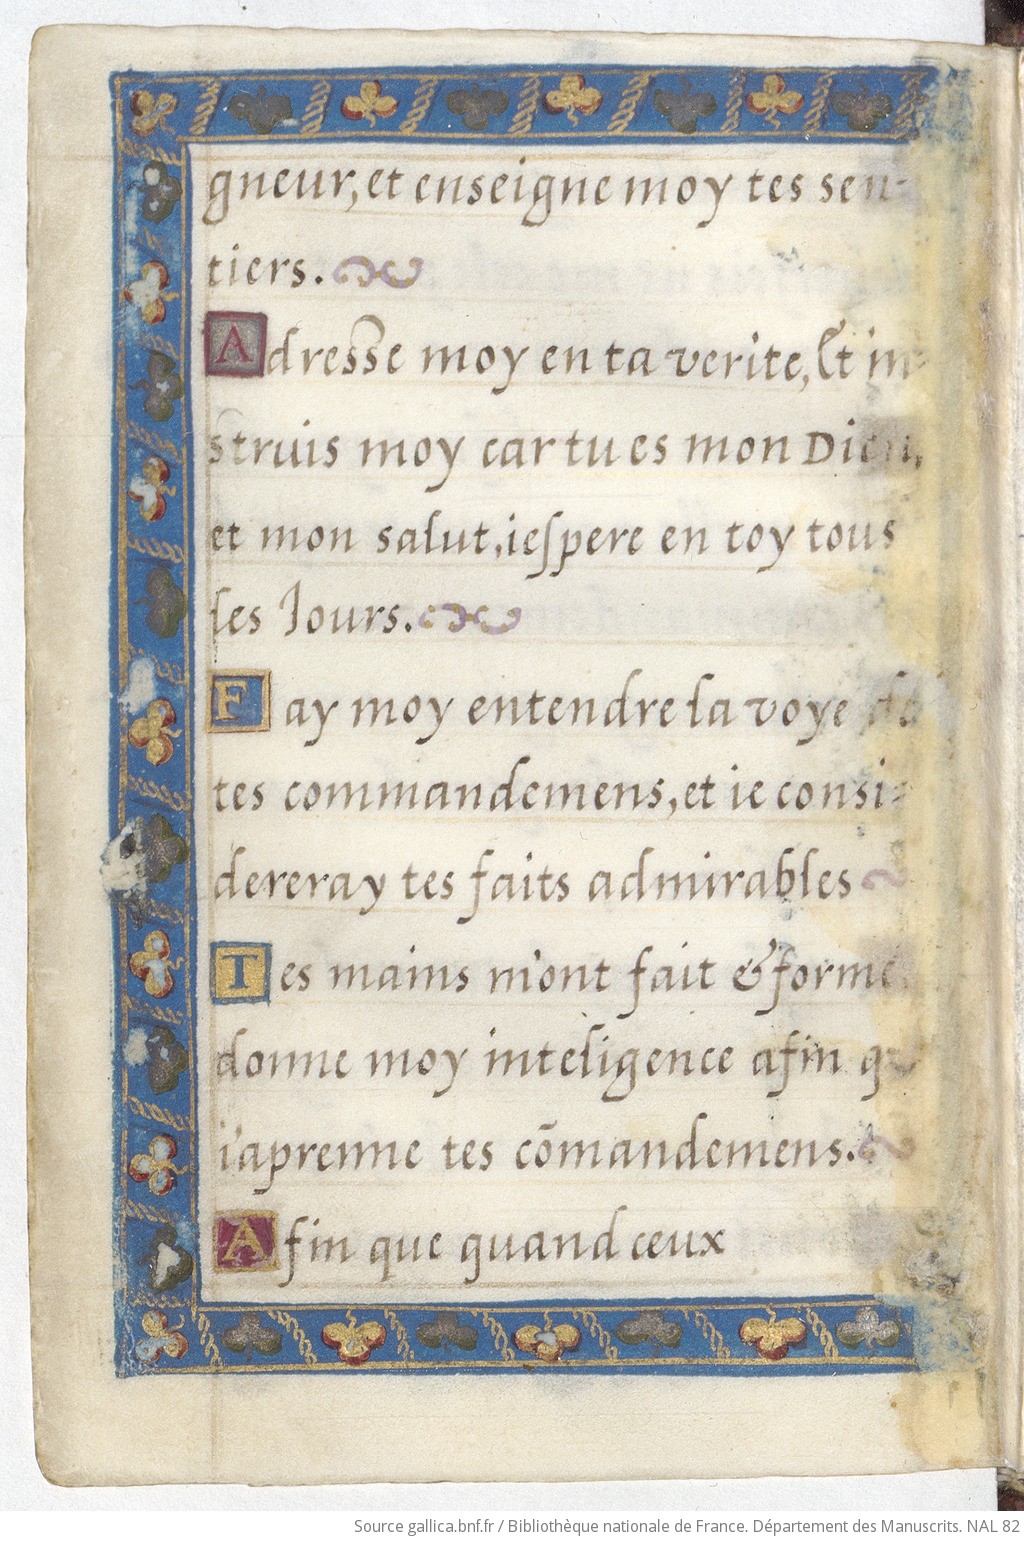 gneur, et enseigne moy tes sen-
tiers.
Adresse moy en ta verite, Et in-
struis moy car tu es mon Dieu,
et mon salut, ieſpere en toy tous
les Jours.
Fay moy entendre la voye de
tes commandemens, et ie consi-
dereray tes faits admirables
Tes mains m'ont fait & forme
donne moy inteligence afin que
i'aprenne tes cõmandemens.
Afin que quand ceux
Source gallica.bnf.fr / Bibliothèque nationale de France. Département des Manuscrits. NAL 82